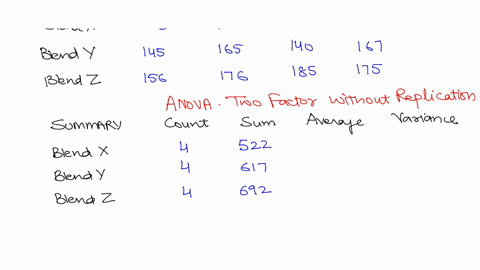 Blend Y 145 165 140 167
Blend Z 156 176 185 175
ANOVA. Two Factor without Replication
SUMMARY Count Sum Average Variance
Blend X 4 522
Blend Y 4 617
Blend Z 4 692